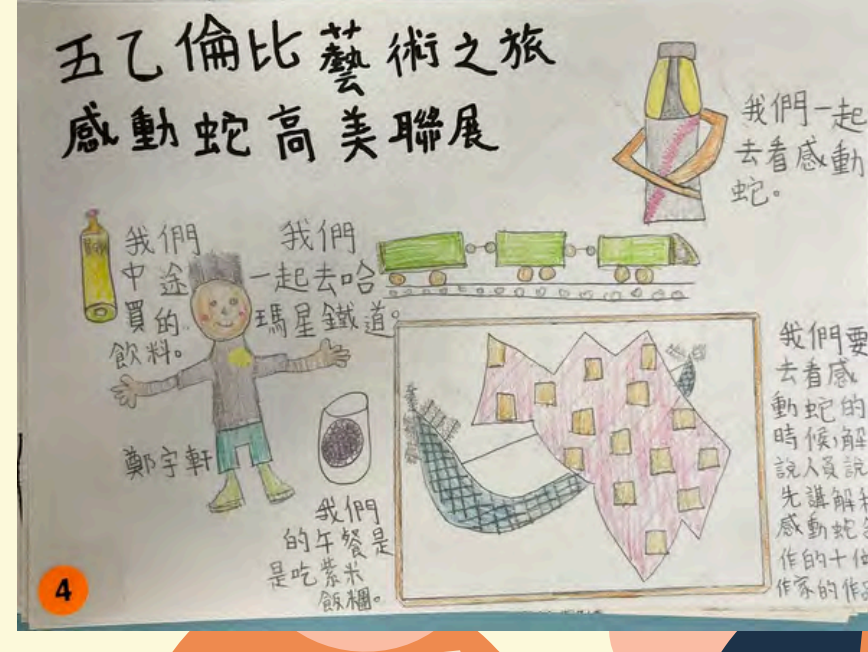 五乙倫比藝術之旅
感動蛇高美聯展
我們一起
去看感動
蛇。
我們
中途
買的
飲料。
我們
一起去哈
瑪星鐵道。
鄭宇軒
我們
的午餐是
是吃紫米
飯糰。
我們要
去看感
動蛇的
時候,解
說人員說
先講解
感動蛇
作的十位
作家的作
4